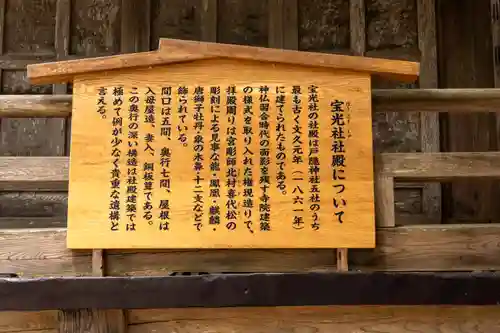 宝光社社殿について
宝光社の社殿は戸隠神社五社のうち
最も古く文久元年（一八六一年）
に建てられたものである。
神仏混合時代の面影を残す寺院建築
の様式を取り入れた権現造りで、
拝殿周りは宮彫師北村喜代松の
彫刻による見事な龍・鳳凰・麒麟
唐獅子牡丹・象の木鼻・十二支などで
飾られている。
間口は五間、奥行七間、屋根は
入母屋造、妻入、銅板葺である。
この奥行の深い構造は社殿建築では
極めて例が少なく貴重な遺構と
言える。